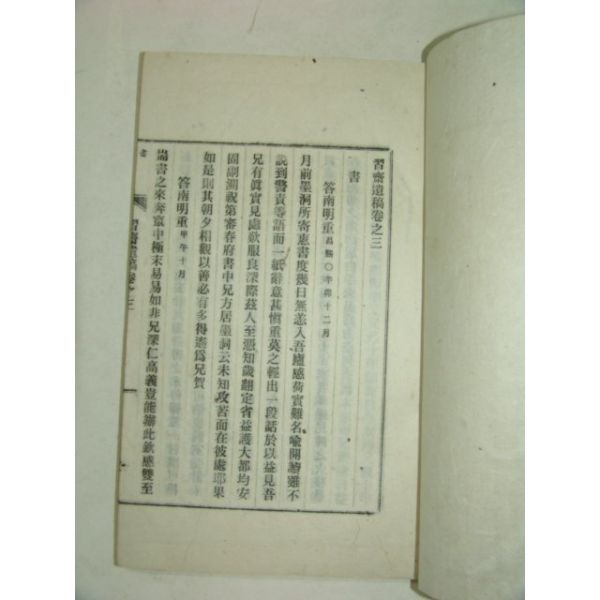 習齋遺稿卷之三
書
答南明重昌熙○辛卯十二月
月前墨洞所寄惠書度幾日無恙入吾廬感荷實難名喩開諭雖不
說到警責等語而一紙辭意甚愼重莫之輕出一段話於以益見吾
兄有眞實見處歎服良深際玆人至憑知歲翻定省益護大都均安
圖副溯祝第審春府書中兄方居墨洞云未知攻苦而在彼處耶果
如是則其朝夕相觀以善必有多得遙爲兄賀
答南明重甲午十月
耑書之來奔竄中極末易易如非兄深仁高義豈能辦此欽感雙至
習齋遺稿卷之三
書